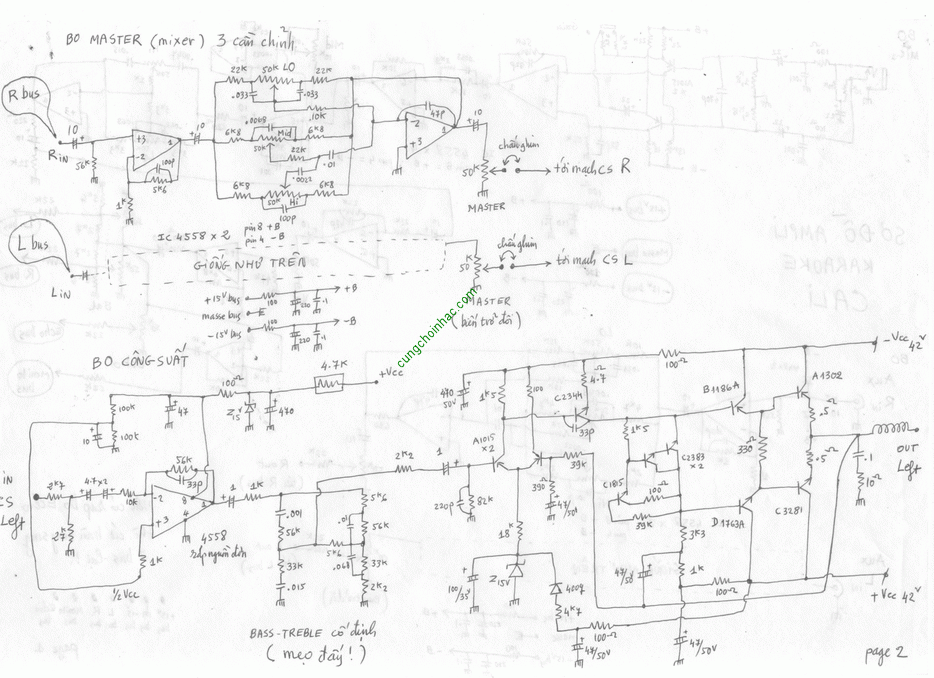 BO MASTER (mixer) 3 cần chỉnh
R bus
RIN
10
56K
+3
-2
1
100p
5K6
1K
10
22K 50K LO 22K
.033 .033
10K
.0068
6K8 Mid 6K8
50K
22K
.01
.0022
6K8 Hi 6K8
50K
100p
47p
-2
+3
1
10
50K
MASTER
chấu ghim
tới mạch CS R
IC 4558 x 2
pin 8 +B
pin 4 -B
L bus
LIN
GIỐNG NHƯ TRÊN
50K
MASTER
(biến trở đôi)
chấu ghim
tới mạch CS L
+15V bus 100 +B
220 .1
masse bus
-15V bus 100 -B
220 .1
cungchoinhac.com
BO CÔNG SUẤT
100Ω
4.7K
+Vcc
100K
100K
10
47
Z 15V
470
IN
CS
Left
2K7
4.7x2
10K
27K
56K
33p
-2
+3
8
4
1
4558
ráp nguồn đơn
1K
½Vcc
1 1K
.001
56K
33K
.015
5K6
5K6
56K
.01
.068
33K
2K2
BASS-TREBLE cố định
(mẹo đấy!)
2K2
1
220p
82K
A1015
x2
470
50V
1K5
100
C2344
4.7Ω
33p
39K
390Ω
47/50V
18K
100/35V
Z 15V
4007
4K7
100Ω
47/50V
1K5
C2383
x2
C1815
100Ω
39K
3K3
47/50V
1K
100Ω
47/50V
100Ω
B1186A
A1302
.5Ω
330Ω
.5Ω
D1763A
C3281
-Vcc 42V
OUT
Left
.1
10Ω
+Vcc 42V
page 2
SƠ ĐỒ AMPLI
KARAOKE
CALI